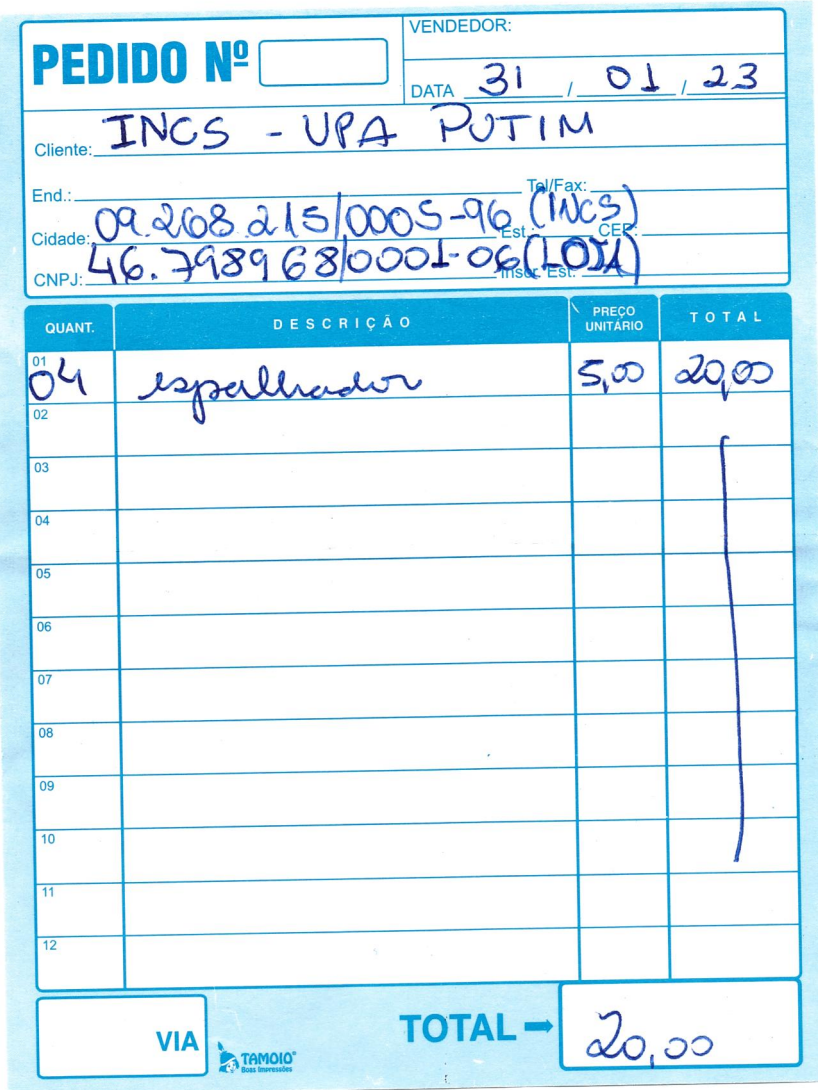 PEDIDO Nº
VENDEDOR:
DATA 31 / 01 / 23
Cliente: INCS - UPA PUTIM
End.: Tel/Fax:
Cidade: 09.268.215/0005-96 (INCS) Est.: CEP:
CNPJ: 46.798968/0001-06 (LOJA) Inscr. Est.:
QUANT. DESCRIÇÃO PREÇO UNITÁRIO TOTAL
01 04 espalhador 5,00 20,00
02
03
04
05
06
07
08
09
10
11
12
VIA
TAMOIO®
Boas Impressões
TOTAL → 20,00